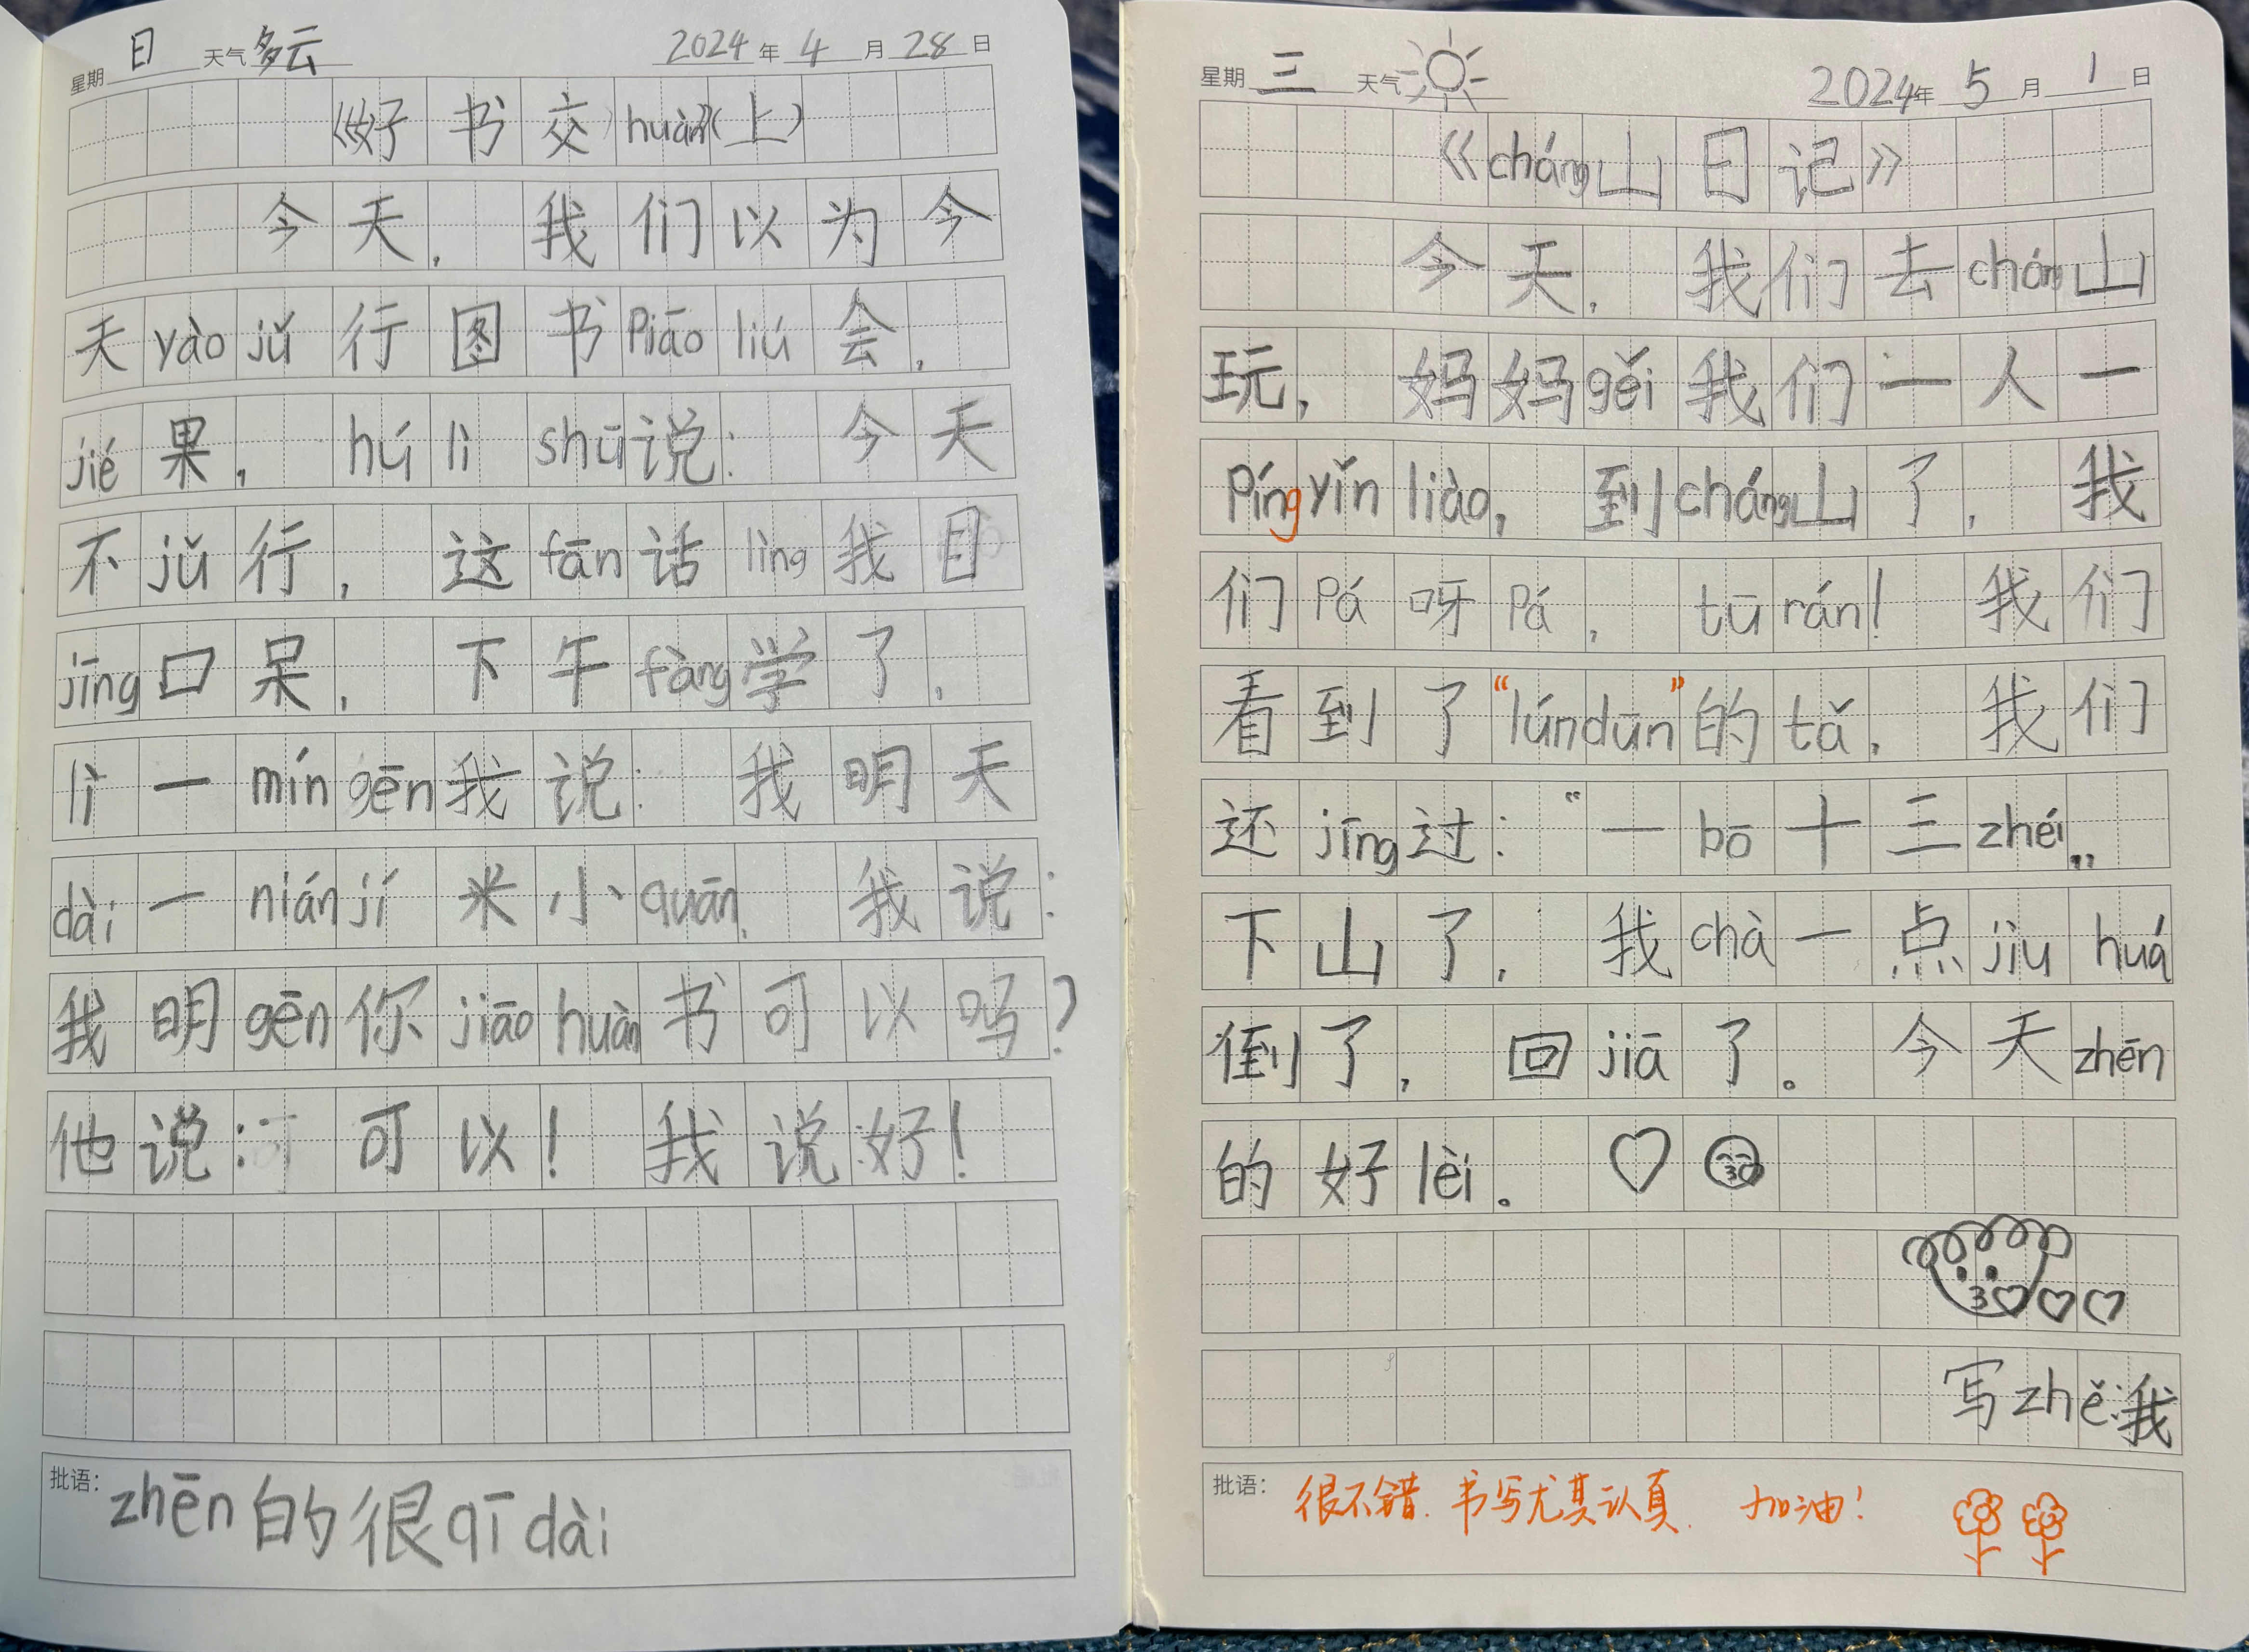 星期 日 天气 多云 2024 年 4 月 28 日
《好书交huàn》(上)
今天，我们以为今
天yào jǔ行图书Piāo liú会，
jié果，hú lì shū说：今天
不jǔ行，这fān话lìng我目
jīng口呆，下午fàng学了，
lǐ一mín gēn我说：我明天
dài一nián jí米小quān，我说：
我明gēn你jiāo huàn书可以吗？
他说：可以！我说好！
批语：zhēn的很qī dài
星期 三 天气 2024年 5 月 1 日
《cháng山日记》
今天，我们去cháng山
玩，妈妈gěi我们一人一
Píng yǐn liào，到cháng山了，我
们Pá呀Pá，tū rán！我们
看到了“lúndūn”的tǎ，我们
还jīng过：“一bō十三zhéi”
下山了，我chà一点jiù huá
倒了，回jiā了。今天zhēn
的好lèi。
写zhě：我
批语：很不错，书写尤其认真，加油！